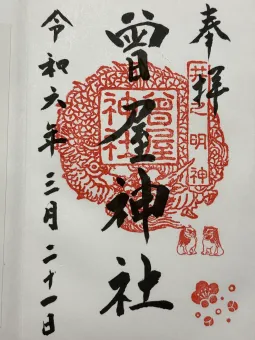 奉拝
井之明神
曽屋神社
曽屋神社
令和六年三月二十一日